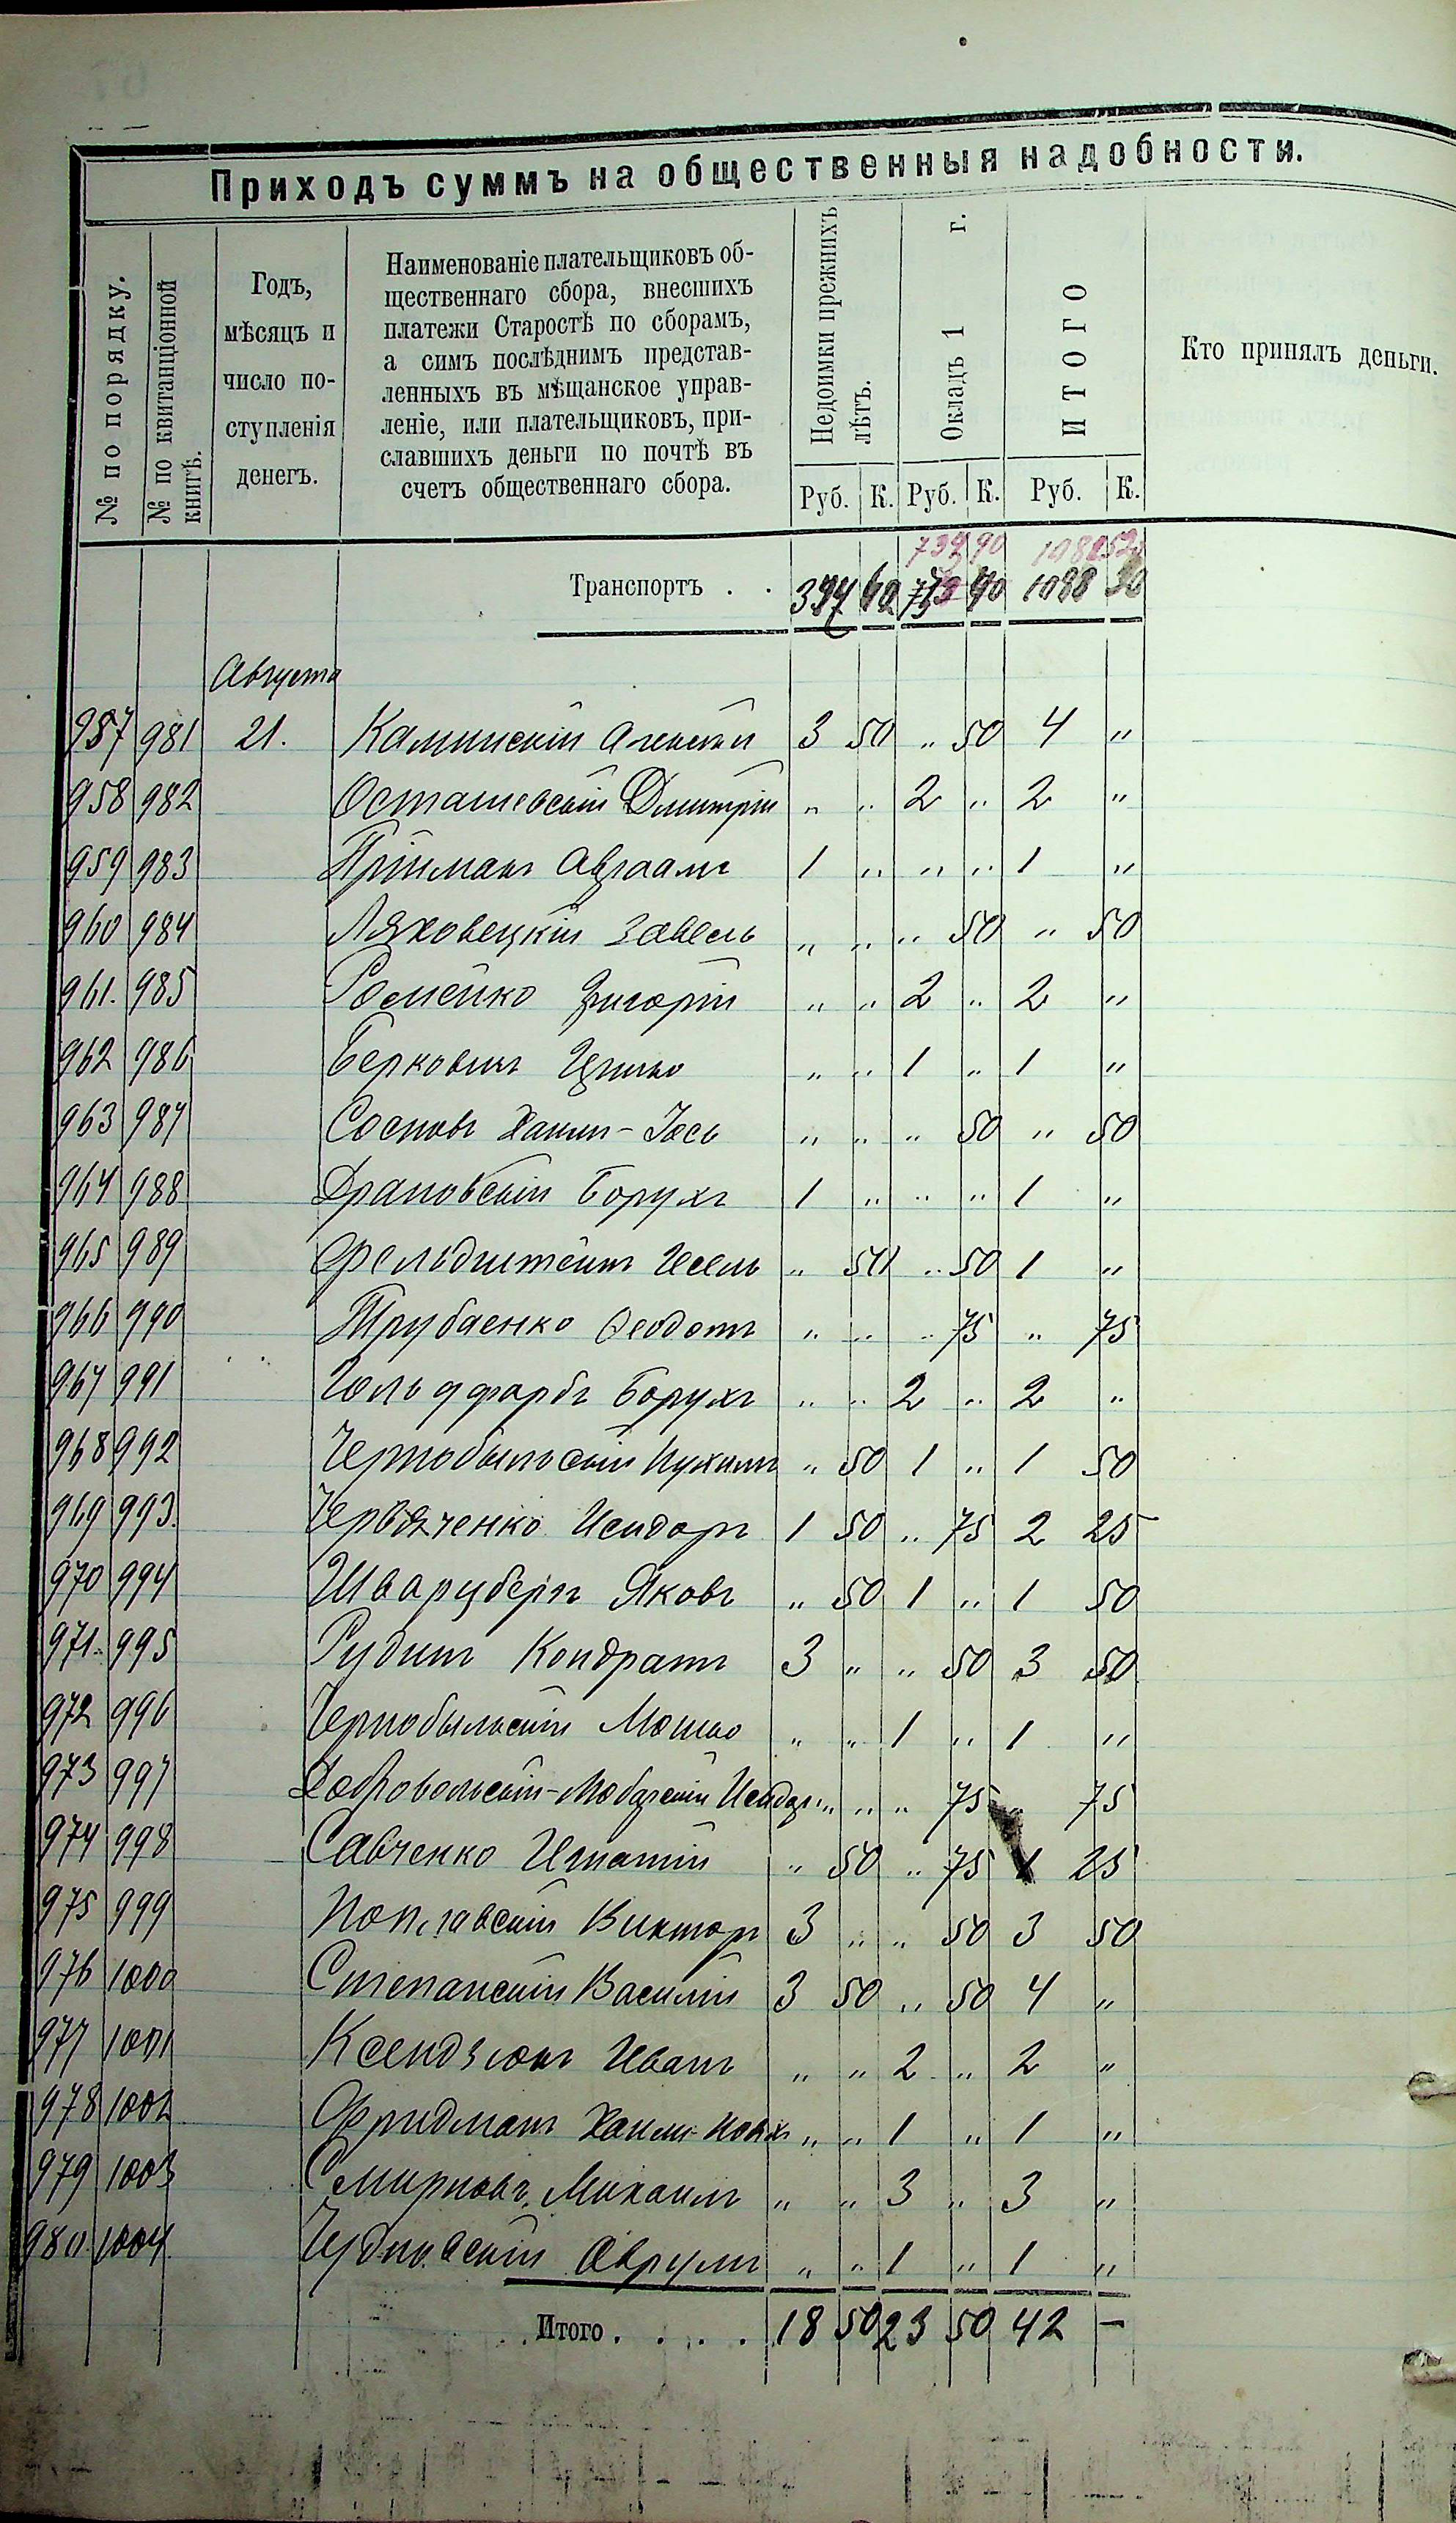 Приходъ суммъ на общественныя надобности.
№ по порядку.
№ по квитанціонной книгѣ.
Годъ,
мѣсяцъ и
число по-
ступленія
денегъ.
Наименованіе плательщиковъ об-
щественнаго сбора, внесшихъ
платежи Старостѣ по сборамъ,
а симъ послѣднимъ представ-
ленныхъ въ мѣщанское управ-
леніе, или плательщиковъ, при-
славшихъ деньги по почтѣ въ
счетъ общественнаго сбора.
Недоимки прежнихъ лѣтъ.
Окладъ 1 г.
ИТОГО
Кто принялъ деньги.
Руб. К. Руб. К. Руб. К.
Транспортъ . .
Августа
957 981 21. Каминскій Алексѣй 3 50 " 50 4 "
958 982 Осташевскій Дмитрій " " 2 " 2 "
959 983 Прійманъ Авраамъ 1 " " " 1 "
960 984 Ляховецкій Завель " " " 50 " 50
961. 985 Ромейко Григорій " " 2 " 2 "
962 986 Берковичъ Ицько " " 1 " 1 "
963 987 Сосновъ Хаимъ-Іось " " " 50 " 50
964 988 Драновскій Борухъ 1 " " " 1 "
965 989 Фельдштейнъ " 50 " 50 1 "
966 990 Трубаенко Феодотъ " " " 75 " 75
967 991 Гольдфарбъ Борухъ " " 2 " 2 "
968 992 Чернобыльскій Нухимъ " 50 1 " 1 50
969 993. Червяченко Исидоръ 1 50 " 75 2 25
970 994 Шварцбергъ Яковъ " 50 1 " 1 50
971. 995 Рудинъ Кондратъ 3 " " 50 3 50
972 996 Чернобыльскій Мошко " " 1 " 1 "
973 997 Добровольскій- Исидоръ " " " 75 " 75
974 998 Савченко Игнатій " 50 " 75 1 25
975 999 Поплавскій Викторъ 3 " " 50 3 50
976 1000 Степанскій Василій 3 50 " 50 4 "
977 1001 Ксендзюкъ Иванъ " " 2 " 2 "
978 1002 Фридманъ Хаимъ- " " 1 " 1 "
979 1003 Смирновъ Михаилъ " " 3 " 3 "
980 1004 Чудновскій Аврумъ " " 1 " 1 "
Итого . . . . 18 50 23 50 42 —